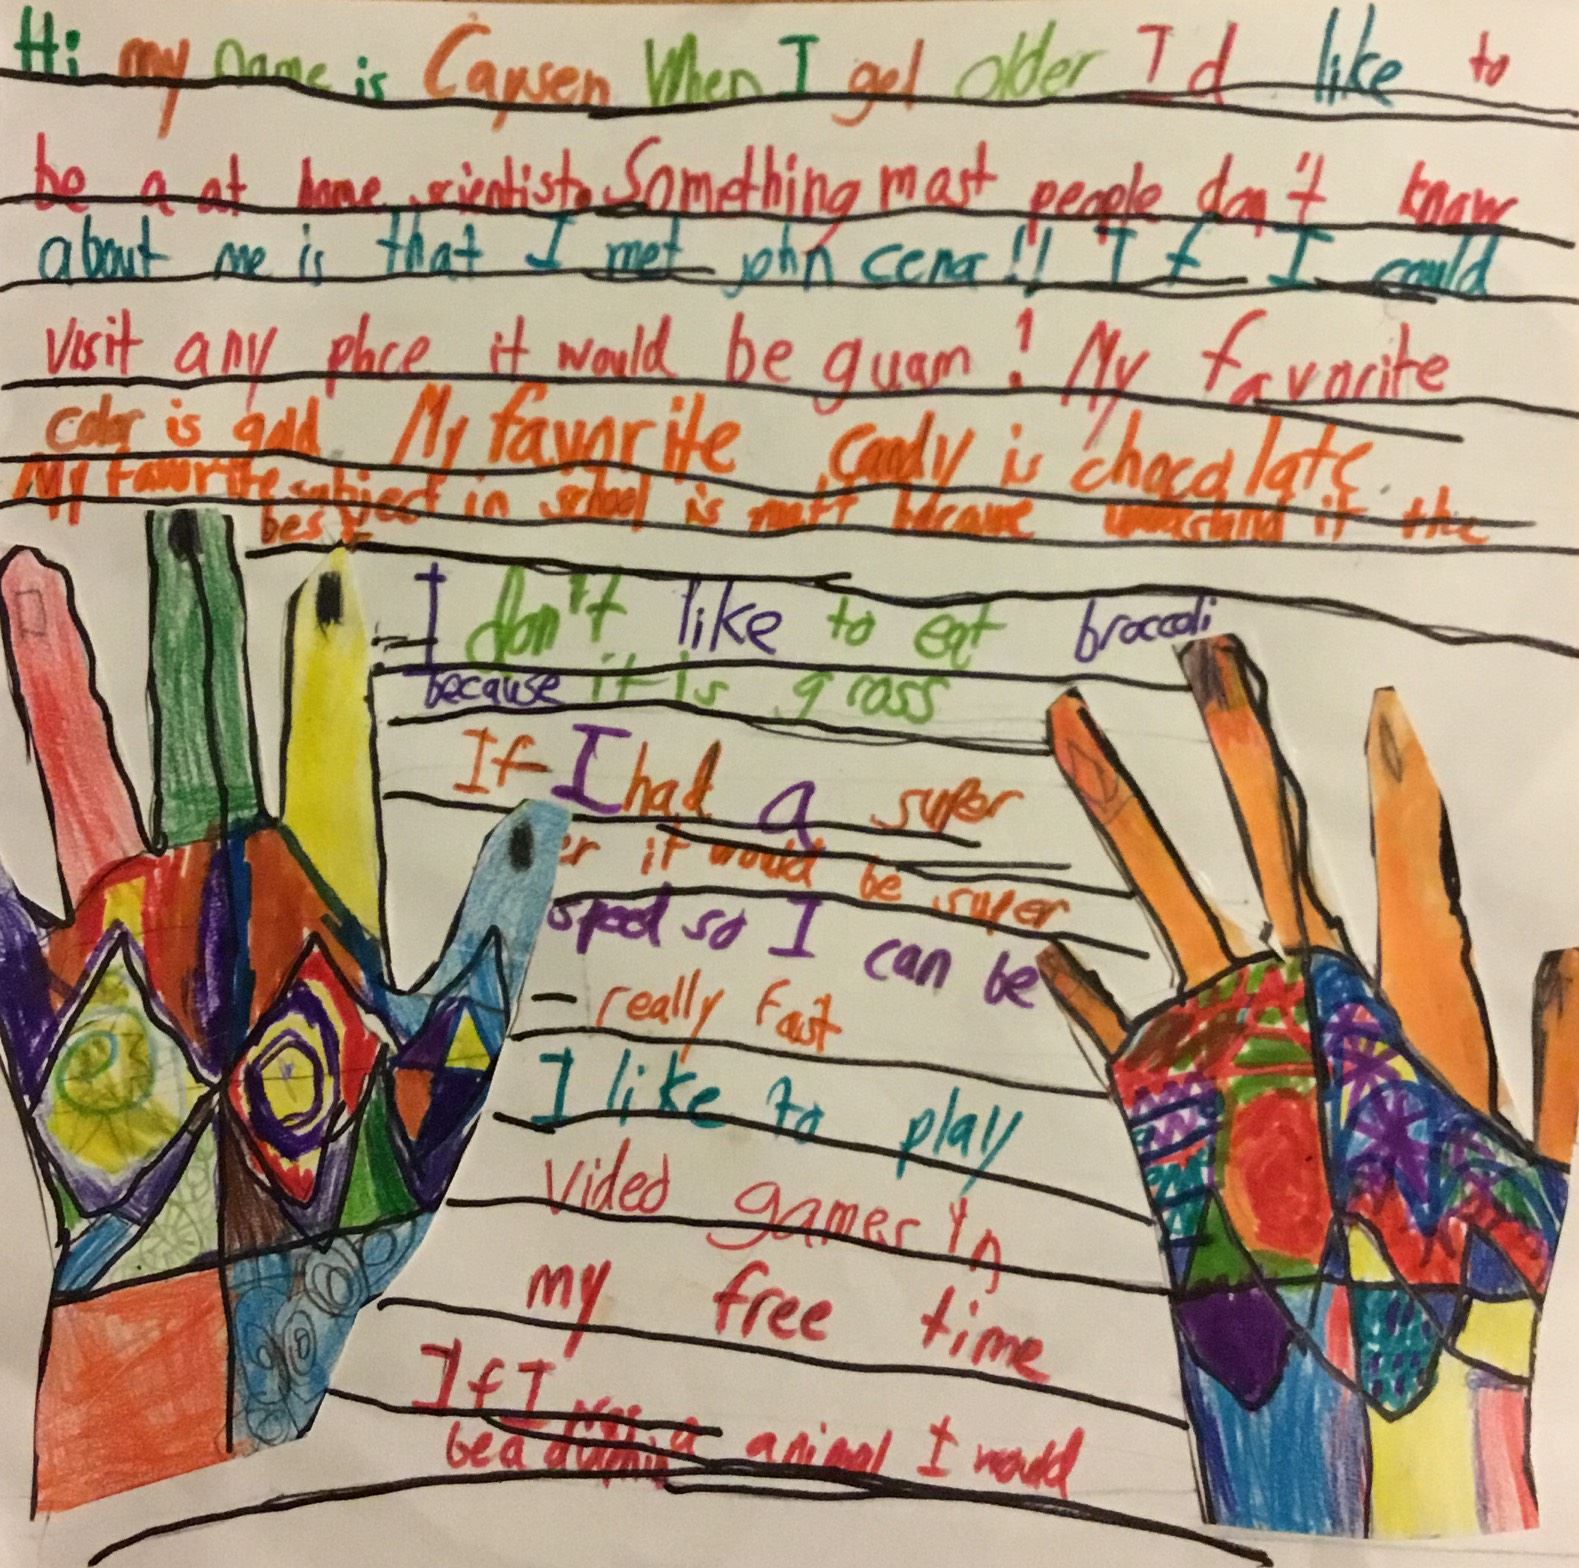 Hi my name is Caysen When I get older I'd like to
be a at home scientist. Something most people don't know
about me is that I met john cena!! If I could
visit any place it would be guam! My favorite
color is gold My favorite candy is chocolate.
My favorite subject in school is math because understand it the
best
I don't like to eat broccoli
because it is gross
If I had a super
er it would be super
speed so I can be
really fast
I like to play
video games in
my free time
If I was a animal I would
be a